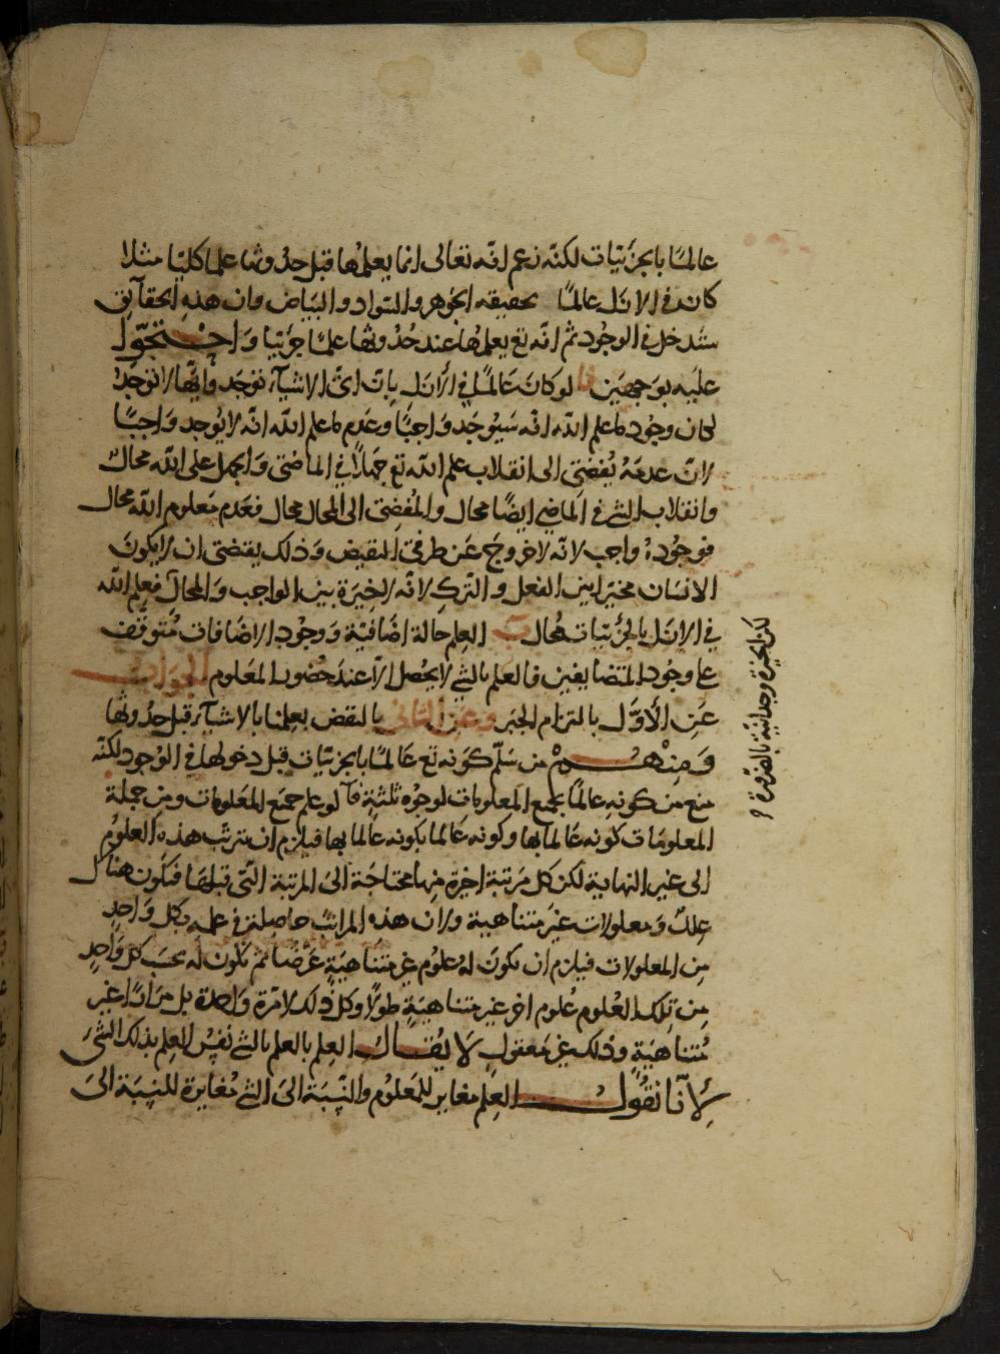 عالمًا بالجزئيات لكنه زعم انه تعالى انما يعلمها قبل حدوثها علما كليا مثلا
كان في الازل عالمًا بحقيقه الجوهر والسواد والبياض وان هذه الحقآيق
ستدخل في الوجود ثم انه تع يعلمها عند حُدُوثها علمًا جزئيا وَاحْتجّوا
عليه بوَجهين ا لو كانَ عَالمًا في الازل بانّ ايّ الاشيآء توجَد وايّها لا توجَد
لكان وجُود ما علم الله انّه سَيُوجَد وَاجبًا وعَدم ما علم الله انّه لا يُوجد وَاجبًا
لانّ عدمَهُ يُفضِي الى انقلاب علم الله تع جهلاً في الماضى وَالجهل على الله محالٌ
وانقلاب الشئ في الماضي ايضًا محال والمُفضِى الى المحال محال فعَدم مَعلوم الله محال
فوجُودهُ واجب لانّه لا خروجَ عَن طرفي النقيض وَذلك يقتضى ان لا يكونَ
الانسَان مخيّرا بين الفعل والتّرك لانّه لا خِيَرَة بين الواجب وَالمحال فعِلم الله
في الازل بالجزئيات محال ب العِلم حالة اضَافيّة وَوجُود الاضَافات مُتوقّف
على وجُود المتضايفين فالعلم بالشئ لا يحْصل الّا عندَ حُضور المَعلوم الجَواب
عَن الاوّل بالتزام الجبَر وعن الثانى بالنقض بعِلمنا بالاشيآء قبل حدُوثها
وَمِنْهُمْ من سَلّم كوَنه تع عَالمًا بالجزئيّات قبل دخولها في الوجود لكنّه
منع من كونه عالمًا بجميع المعلومات لوجُوه ثلثةٍ آ لو علم جميع المَعلومات ومن جملة
المعلومَات كونه عَالما بها وكونه عَالما بكونه عالما بها فيلزم ان تترتّب هذه العلُوم
الى غير النهاية لكن كل مَرتبة اخيرة منها محتاجَة الى المرتبة التّي قبلهَا فتكون هناك
عِللٌ ومعلولات غيَر متناهية ولان هذه المراتبَ حاصِلة في علمه بكل وَاحدٍ
من المعلولات فيلزم ان يكونَ لهُ علوُم غير متناهيَةٍ عَرضًا ثم تكون له بحَسَب كلّ وَاحدٍ
من تلك العُلوم عُلوم اخر غير متناهيَةٍ طولًا وكل ذلك لا مَرّة وَاحدة بل مِرَارًا غير
مُتناهيَةٍ وذلك غير مَعقولٍ لا يُقَالُ العِلم بالعلم بالشئ نفسُ العِلم بذلك الشئ
لِأنّا نقُولُ العِلمُ مغاير للمَعلوُم والنّسبَة الىَ الشئ مُغايرة للنسبَة الىَ
لكن الخِيَرة وجدانيّة بالضرورة